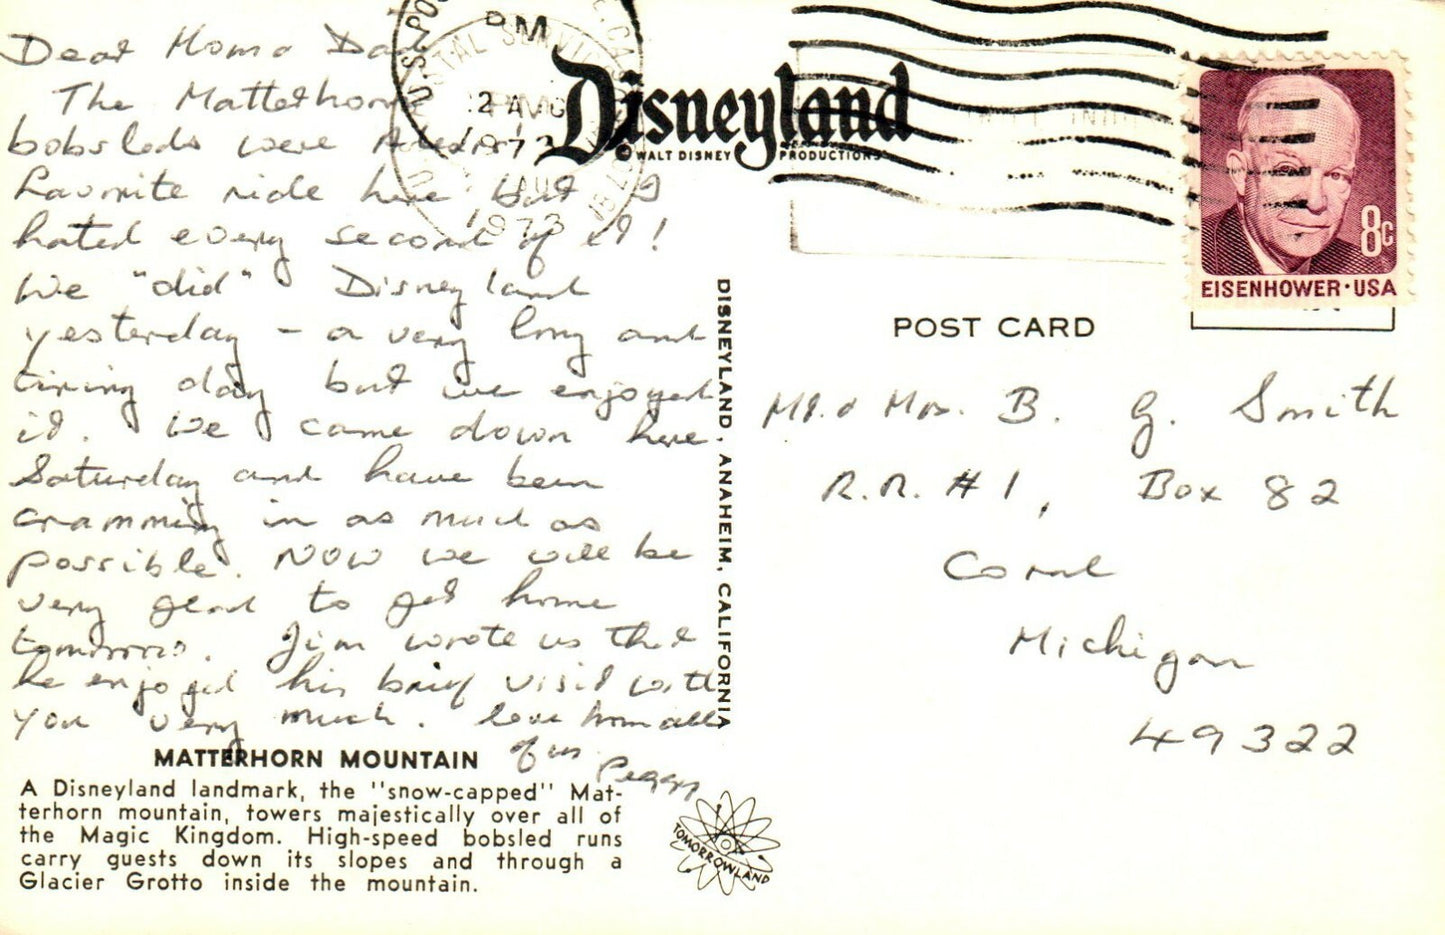 Dear Mom & Dad
The Matterhorn
bobsleds were
favorite ride here but I
hated every second of it!
We "did" Disneyland
yesterday – a very long and
tiring day but we enjoyed
it. We came down here
Saturday and have been
cramming in as much as
possible. Now we will be
very glad to get home
tomorrow. Jim wrote us that
he enjoyed his brief visit with
you very much. Love from all
of us. Peggy
MATTERHORN MOUNTAIN
A Disneyland landmark, the "snow-capped" Mat-
terhorn mountain, towers majestically over all of
the Magic Kingdom. High-speed bobsled runs
carry guests down its slopes and through a
Glacier Grotto inside the mountain.
PM
U.S. POSTAL SERVICE, CA
1973
1973
Disneyland
© WALT DISNEY PRODUCTIONS
DISNEYLAND, ANAHEIM, CALIFORNIA
TOMORROWLAND
8c
EISENHOWER·USA
POST CARD
Mr. & Mrs. B. G. Smith
R.R. #1, Box 82
Coral
Michigan
49322